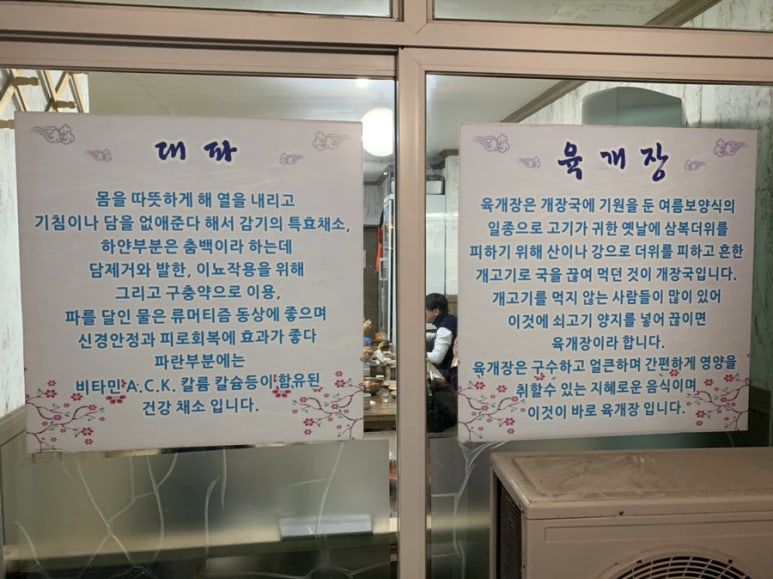 대 파
몸을 따뜻하게 해 열을 내리고
기침이나 담을 없애준다 해서 감기의 특효채소,
하얀부분은 춤백이라 하는데
담제거와 발한, 이뇨작용을 위해
그리고 구충약으로 이용,
파를 달인 물은 류머티즘 동상에 좋으며
신경안정과 피로회복에 효과가 좋다
파란부분에는
비타민A.C.K. 칼륨 칼슘등이 함유된
건강 채소 입니다.
육 개 장
육개장은 개장국에 기원을 둔 여름보양식의
일종으로 고기가 귀한 옛날에 삼복더위를
피하기 위해 산이나 강으로 더위를 피하고 흔한
개고기로 국을 끊여 먹던 것이 개장국입니다.
개고기를 먹지 않는 사람들이 많이 있어
이것에 쇠고기 양지를 넣어 끊이면
육개장이라 합니다.
육개장은 구수하고 얼큰하며 간편하게 영양을
취할수 있는 지혜로운 음식이며
이것이 바로 육개장 입니다.